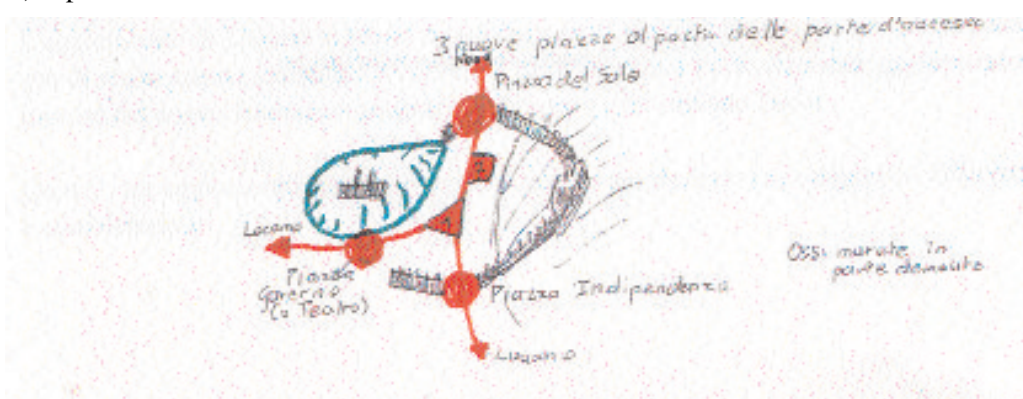 3 nuove piazze al posto delle porte d'accesso
Nord
Piazza del Sole
Locarno
Piazza
Governo
(o Teatro)
Piazza Indipendenza
Lugano
Oss: murate in
parte demolite